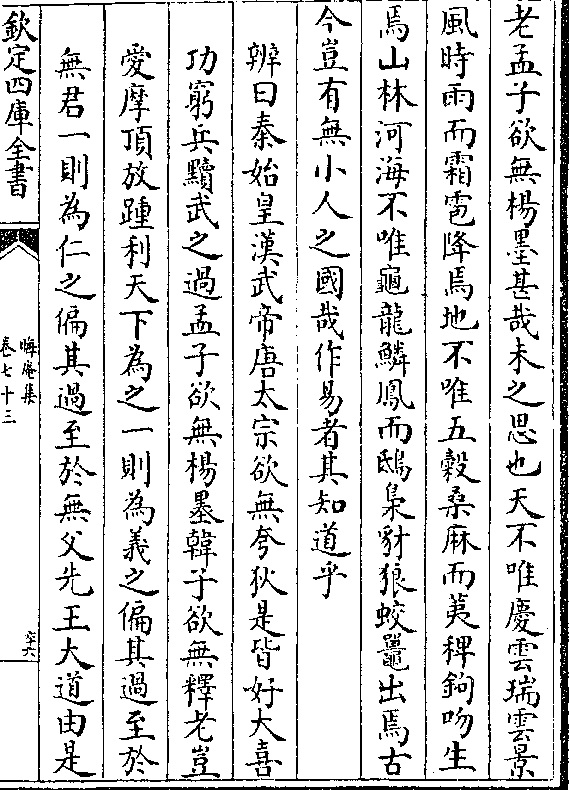 老孟子欲無楊墨甚哉未之思也天不唯慶雲瑞雲景
風時雨而霜雹降焉地不唯五穀桑麻而荑稗鉤吻生
焉山林河海不唯龜龍鱗鳳而鴟梟豺狼蛟鼉出焉古
今豈有無小人之國哉作易者其知道乎
辨曰秦始皇漢武帝唐太宗欲無夸狄是皆好大喜
功窮兵黷武之過孟子欲無楊墨韓子欲無釋老豈
愛摩頂放踵利天下為之一則為義之偏其過至於
無君一則為仁之偏其過至於無父先王大道由是
欽定四庫全書
晦庵集
卷七十三